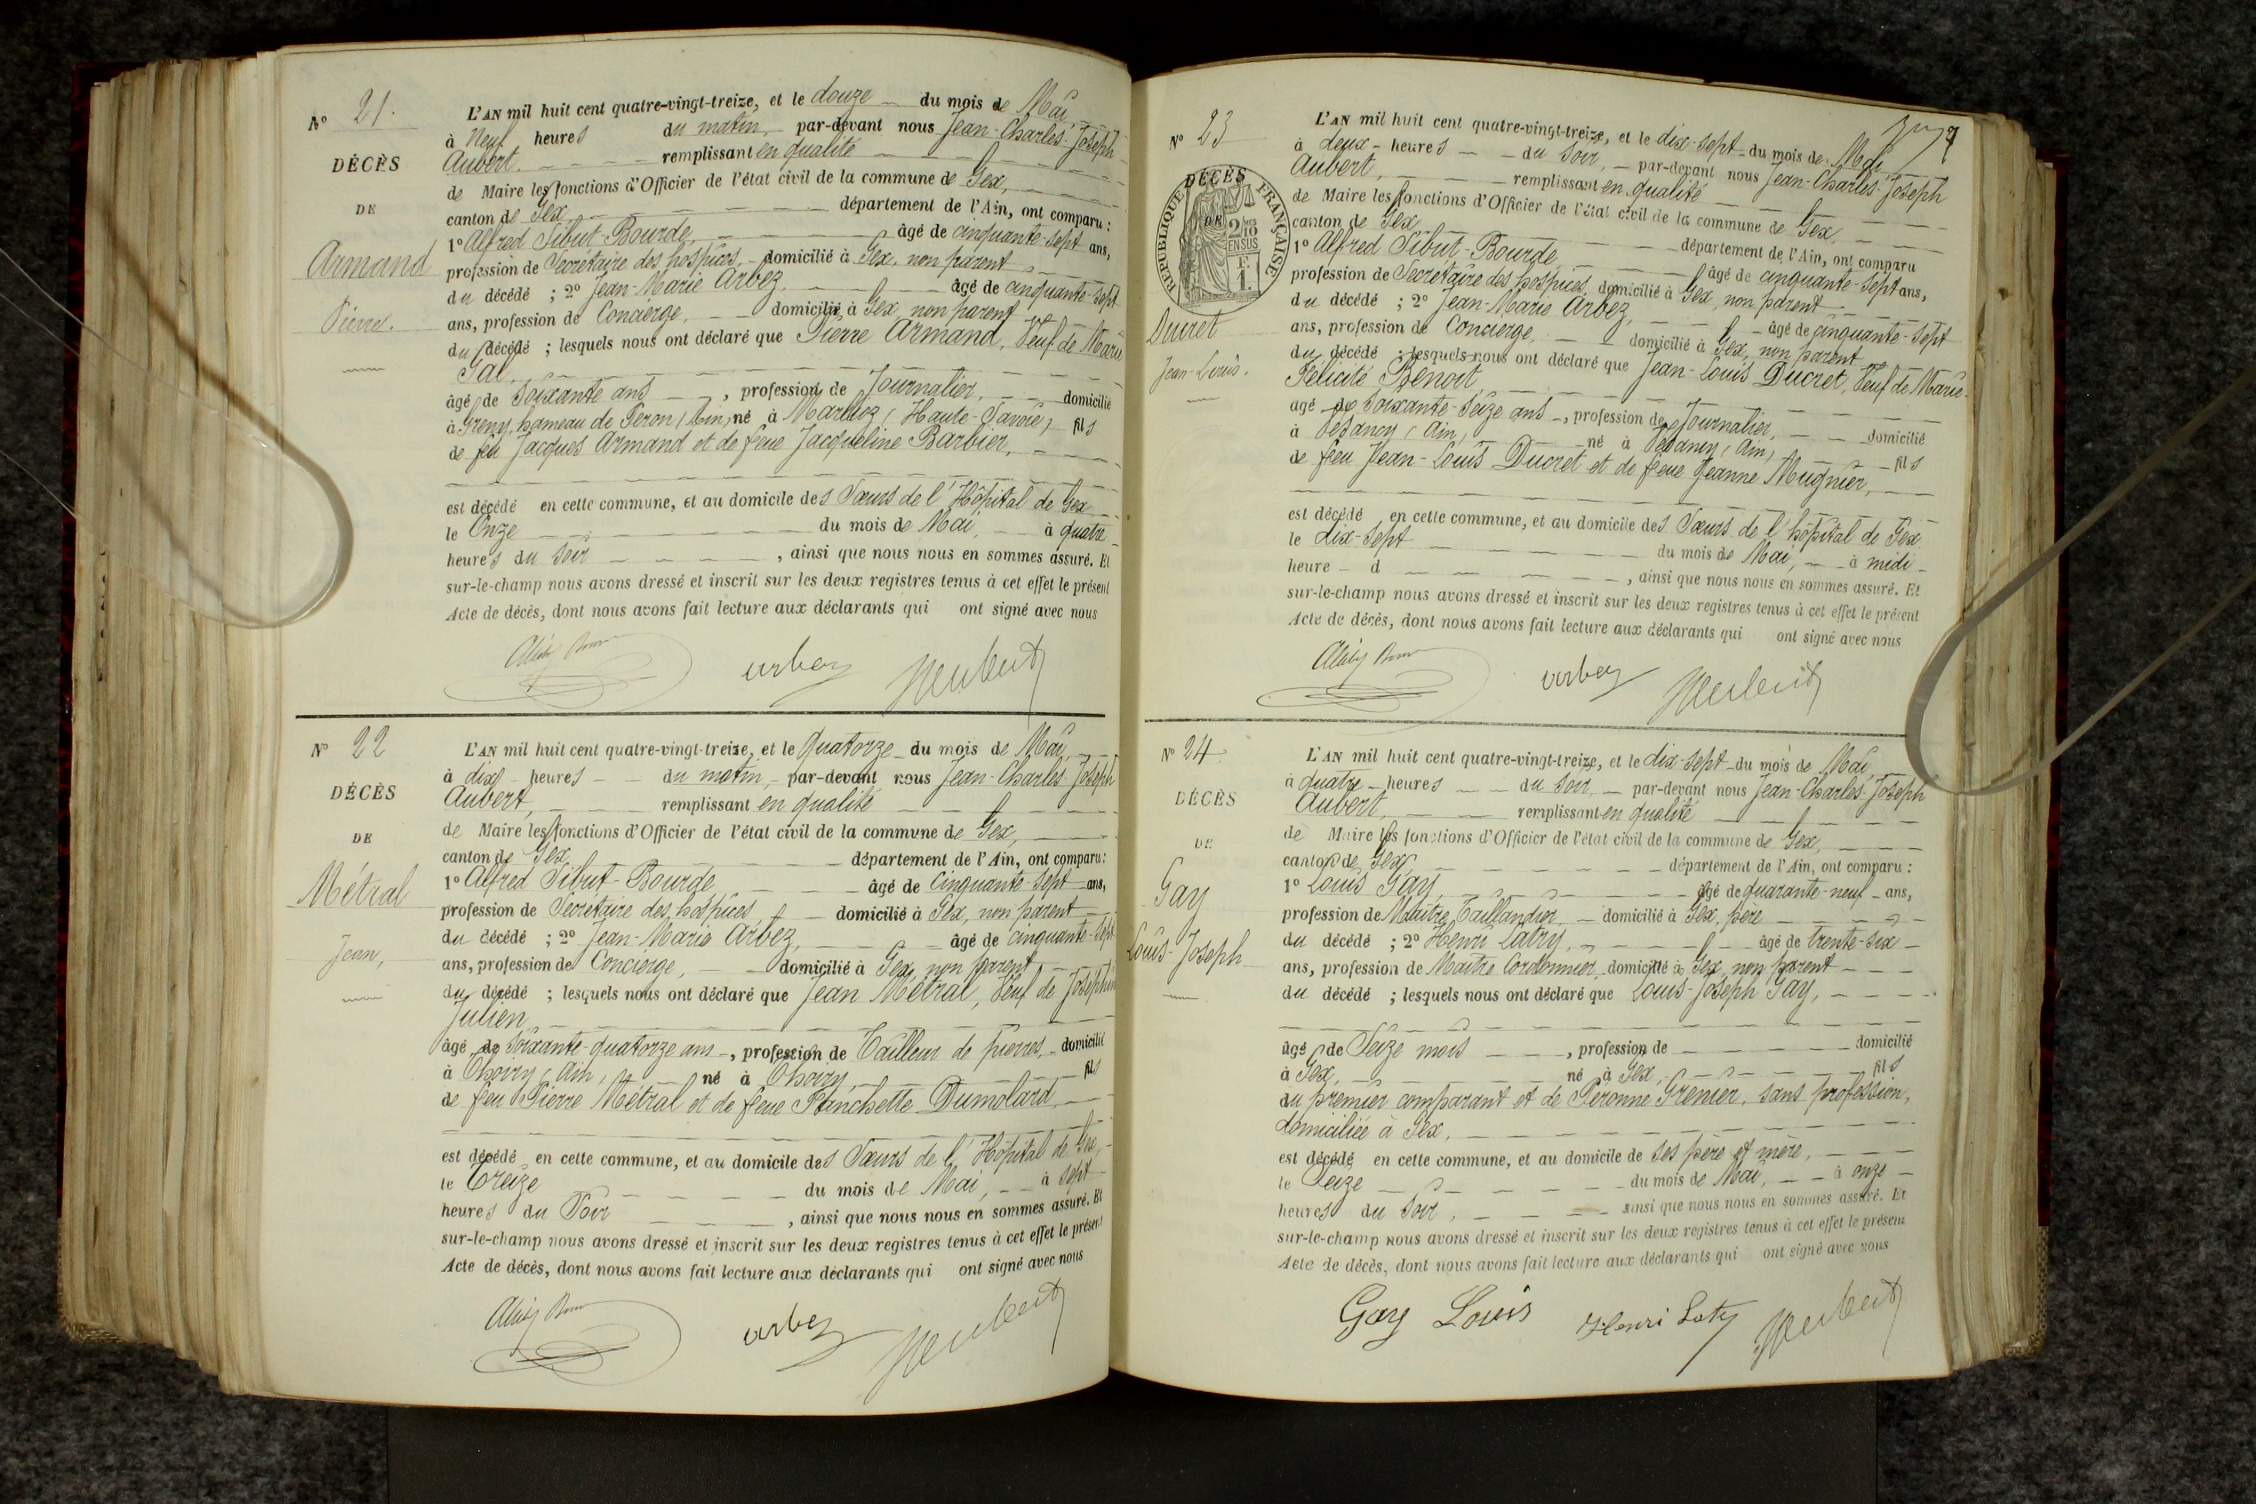 N° 21.
DÉCÈS
DE
Armand
Pierre.
L'AN mil huit cent quatre-vingt-treize, et le douze du mois de Mai,
à Neuf heures du matin, par-devant nous Jean-Charles-Joseph
Aubert, remplissant en qualité
de Maire les fonctions d'Officier de l'état civil de la commune de Gex,
canton de Gex, département de l'Ain, ont comparu :
1° Alfred Sibut-Bourde, âgé de cinquante-sept ans,
profession de Secrétaire des hospices, domicilié à Gex, non parent
du décédé ; 2° Jean-Marie Arbez, âgé de cinquante-sept
ans, profession de Concierge, domicilié à Gex, non parent
du décédé ; lesquels nous ont déclaré que Pierre Armand, Veuf de Marie
Gal,
âgé de Soixante ans, profession de Journalier, domicilié
à Greny, hameau de Peron (Ain) né à Marlioz (Haute-Savoie) fils
de feu Jacques Armand et de feue Jacqueline Barbier,
est décédé en cette commune, et au domicile des Sœurs de l'Hôpital de Gex
le Onze du mois de Mai, à quatre
heures du Soir, ainsi que nous nous en sommes assuré. Et
sur-le-champ nous avons dressé et inscrit sur les deux registres tenus à cet effet le présent
Acte de décès, dont nous avons fait lecture aux déclarants qui ont signé avec nous
arbez
N° 22
DÉCÈS
DE
Métral
Jean,
L'AN mil huit cent quatre-vingt-treize, et le Quatorze du mois de Mai,
à dix heures du matin, par-devant nous Jean-Charles-Joseph
Aubert, remplissant en qualité
de Maire les fonctions d'Officier de l'état civil de la commune de Gex,
canton de Gex, département de l'Ain, ont comparu :
1° Alfred Sibut-Bourde âgé de Cinquante-sept ans,
profession de Secrétaire des hospices, domicilié à Gex, non parent
du décédé ; 2° Jean-Marie Arbez, âgé de cinquante-sept
ans, profession de Concierge, domicilié à Gex, non parent
du décédé ; lesquels nous ont déclaré que Jean Métral, Veuf de Joséphine
Julien
âgé de Soixante-quatorze ans, profession de Tailleur de pierres, domicilié
à Thoiry (Ain), né à Thoiry, fils
de feu Pierre Métral et de feue Franchette Dumolard
est décédé en cette commune, et au domicile des Sœurs de l'Hôpital de Gex,
le Treize du mois de Mai, à sept
heures du Soir, ainsi que nous nous en sommes assuré. Et
sur-le-champ nous avons dressé et inscrit sur les deux registres tenus à cet effet le présent
Acte de décès, dont nous avons fait lecture aux déclarants qui ont signé avec nous
arbez
N° 23
DÉCÈS
DE
RÉPUBLIQUE FRANÇAISE
2/10
EN SUS
F.
1.
Ducret
Jean-Louis.
L'AN mil huit cent quatre-vingt-treize, et le dix-sept du mois de Mai
à deux heures du Soir, par-devant nous Jean-Charles-Joseph
Aubert, remplissant en qualité
de Maire les fonctions d'Officier de l'état civil de la commune de Gex,
canton de Gex département de l'Ain, ont comparu
1° Alfred Sibut-Bourde âgé de cinquante-sept ans,
profession de Secrétaire des hospices, domicilié à Gex, non parent
du décédé ; 2° Jean-Marie Arbez, âgé de cinquante-sept
ans, profession de Concierge, domicilié à Gex, non parent
du décédé ; lesquels nous ont déclaré que Jean-Louis Ducret, Veuf de Marie-
Félicité Benoit,
âgé de Soixante-Seize ans, profession de Journalier, domicilié
à Vesancy (Ain), né à Vesancy (Ain), fils
de feu Jean-Louis Ducret et de feue Jeanne Mugnier,
est décédé en cette commune, et au domicile des Sœurs de l'hôpital de Gex
le dix-sept du mois de Mai, à midi
heure d , ainsi que nous nous en sommes assuré. Et
sur-le-champ nous avons dressé et inscrit sur les deux registres tenus à cet effet le présent
Acte de décès, dont nous avons fait lecture aux déclarants qui ont signé avec nous
arbez
N° 24
DÉCÈS
DE
Gay
Louis-Joseph
L'AN mil huit cent quatre-vingt-treize, et le dix-sept du mois de Mai,
à quatre heures du Soir, par-devant nous Jean-Charles-Joseph
Aubert, remplissant en qualité
de Maire les fonctions d'Officier de l'état civil de la commune de Gex,
canton de Gex, département de l'Ain, ont comparu :
1° Louis Gay, âgé de quarante-neuf ans,
profession de Maître Taillandier domicilié à Gex, père
du décédé ; 2° Henri Latry, âgé de trente-six
ans, profession de Maître Cordonnier domicilié à Gex, non parent
du décédé ; lesquels nous ont déclaré que Louis-Joseph Gay,
âgé de Seize mois, profession de domicilié
à Gex, né à Gex, fils
du premier comparant et de Péronne Grenier, sans profession,
domiciliée à Gex,
est décédé en cette commune, et au domicile de ses père et mère,
le Seize du mois de Mai, à onze
heures du Soir, ainsi que nous nous en sommes assuré. Et
sur-le-champ nous avons dressé et inscrit sur les deux registres tenus à cet effet le présent
Acte de décès, dont nous avons fait lecture aux déclarants qui ont signé avec nous
Gay Louis